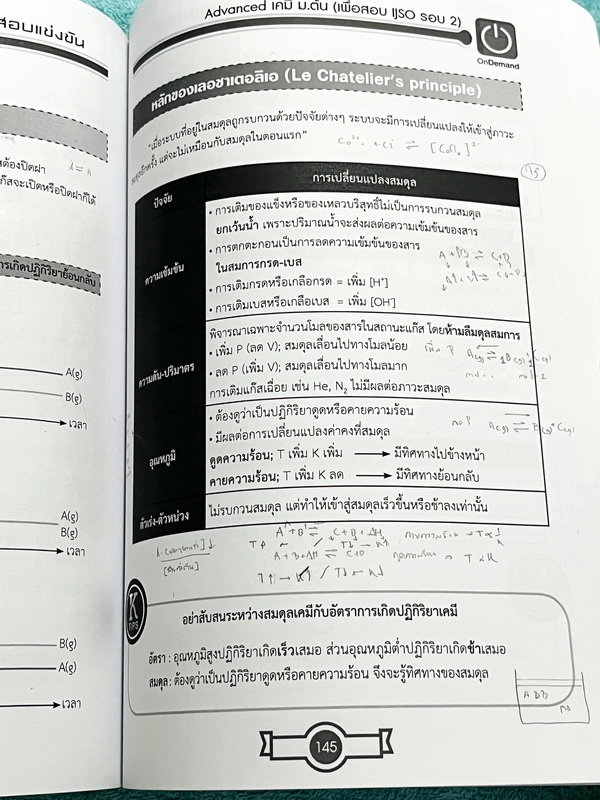 สอบแข่งขัน
ต้องปิดฝา
ก๊สจะเปิดหรือปิดฝาก็ได้
การเกิดปฏิกิริยาย้อนกลับ
A(g)
B(g)
เวลา
A(g)
B(g)
เวลา
B(g)
A(g)
เวลา
Advanced เคมี ม.ต้น (เพื่อสอบ IJSO รอบ 2)
OnDemand
หลักของเลอชาเตอลิเอ (Le Chatelier's principle)
"เมื่อระบบที่อยู่ในสมดุลถูกรบกวนด้วยปัจจัยต่างๆ ระบบจะมีการเปลี่ยนแปลงให้เข้าสู่ภาวะ
สมดุลอีกครั้ง แต่จะไม่เหมือนกับสมดุลในตอนแรก"
ปัจจัย
การเปลี่ยนแปลงสมดุล
ความเข้มข้น
• การเติมของแข็งหรือของเหลวบริสุทธิ์ไม่เป็นการรบกวนสมดุล
ยกเว้นน้ำ เพราะปริมาณน้ำจะส่งผลต่อความเข้มข้นของสาร
• การตกตะกอนเป็นการลดความเข้มข้นของสาร
ในสมการกรด-เบส
• การเติมกรดหรือเกลือกรด = เพิ่ม [H⁺]
• การเติมเบสหรือเกลือเบส = เพิ่ม [OH⁻]
ความดัน-ปริมาตร
พิจารณาเฉพาะจำนวนโมลของสารในสถานะแก๊ส โดยห้ามลืมดุลสมการ
• เพิ่ม P (ลด V); สมดุลเลื่อนไปทางโมลน้อย
• ลด P (เพิ่ม V); สมดุลเลื่อนไปทางโมลมาก
การเติมแก๊สเฉื่อย เช่น He, N₂ ไม่มีผลต่อภาวะสมดุล
อุณหภูมิ
• ต้องดูว่าเป็นปฏิกิริยาดูดหรือคายความร้อน
• มีผลต่อการเปลี่ยนแปลงค่าคงที่สมดุล
ดูดความร้อน; T เพิ่ม K เพิ่ม → มีทิศทางไปข้างหน้า
คายความร้อน; T เพิ่ม K ลด → มีทิศทางย้อนกลับ
ตัวเร่ง-ตัวหน่วง
ไม่รบกวนสมดุล แต่ทำให้เข้าสู่สมดุลเร็วขึ้นหรือช้าลงเท่านั้น
A + B ⇌ C + D + ΔH
A + B + ΔH ⇌ C + D
K
TIPS
อย่าสับสนระหว่างสมดุลเคมีกับอัตราการเกิดปฏิกิริยาเคมี
อัตรา : อุณหภูมิสูงปฏิกิริยาเกิดเร็วเสมอ ส่วนอุณหภูมิต่ำปฏิกิริยาเกิดช้าเสมอ
สมดุล : ต้องดูว่าเป็นปฏิกิริยาดูดหรือคายความร้อน จึงจะรู้ทิศทางของสมดุล
145